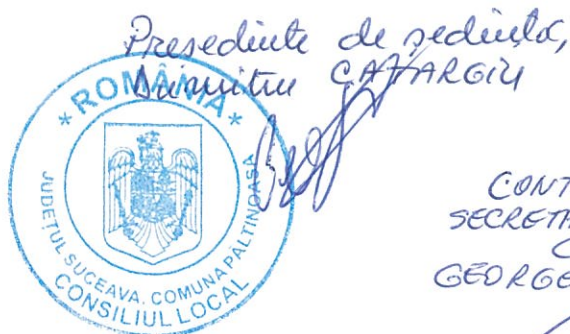 Președinte de ședință,
Dumitru CAZARGIU
*ROMÂNIA*
JUDEȚUL SUCEAVA. COMUNA PĂLTINOASA
CONSILIUL LOCAL
CONT
SECRETA
C
GEORGE